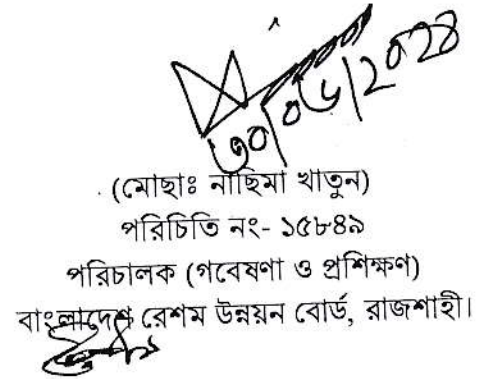 ৩০/০৬/২০২৪
(মোছাঃ নাছিমা খাতুন)
পরিচিতি নং- ১৫৮৪৯
পরিচালক (গবেষণা ও প্রশিক্ষণ)
বাংলাদেশ রেশম উন্নয়ন বোর্ড, রাজশাহী।